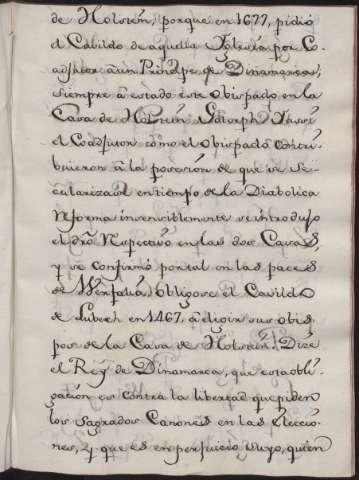 de Holstein, porque en 1677, pidió
el Cabildo de aquella Iglesia por Co-
adjutor a un Principe de Dinamarca,
siempre a estado este Obispado en la
Casa de Holstein
el Coadjutor como el Obispado contri-
buieron a la posesion de que se se-
cularizaô en tiempo de la Diabolica
Reforma insensiblemente se introdujo
el dro Respectivo en las dos Casas,
y se confirmó por tal en las paces
de Wesfalia, obligose el Cavildo
de Lubech en 1467. a elegir sus obis-
pos de la Casa de Holstein. Dize
el Rey de Dinamarca, que esta obli-
gación es contra la libertad que piden
los Sagrados Canones en las Eleccio-
nes, y que es en perjuicio suyo, quien